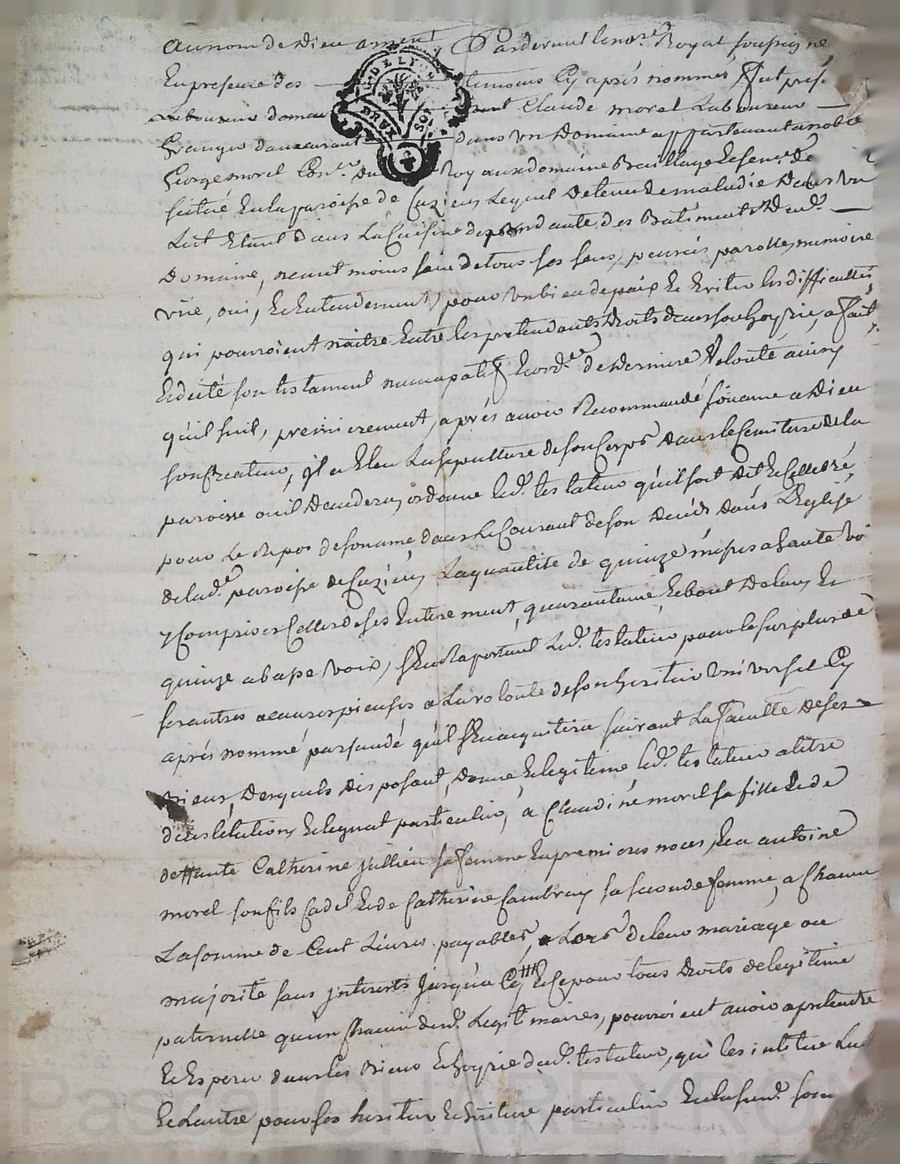 Au nom de Dieu amen Pardevant le no.re Royal soussigné
En presence des temoins Cy aprés nommés fut
Laboureur Claude morel Laboureur
Granger dans un Domaine appartenant a noble
George morel Con.er du Roy aux domaine Bailliage
situé En la paroisse de Cuzieu Lequel detenu de maladie Dans un
Lict Etant Dans La Cuisine dependante des Batiments Dud.
Domaine, neant moins sain de tous ses sens, pensées parolle, memoire
vüe, oui, Et Entendement, pour un bien de paix Et Eviter les difficultés
qui pourroient naitre Entre les pretendants Droits dans son hoyrie, a fait
Et dicté son testament nuncupatif Et ord.ce de Derniere volonté ainsy
qu'il suit, premierement, aprés avoir Recommandé son ame a Dieu
son Createur, il a Elu La sepulture de son Corps Dans le Cemitiere de la
paroisse ou il Decedera, ordonne led. testateur qu'il soit Dit Et Celebré
pour Le Repos de son ame dans Le Courant de son Decéds Dans L'Eglise
de lad.e paroisse de Cuzieu, La quantité de quinze messes a haute voi
y Comprises Celles de ses Enterrement, quarantaine Et bout De lan, Et
quinze a basse voix, s'En Raportant Led. testateur pour le surplus de
ses autres œuvres pieuses a La volonté de son heritier universel Cy
aprés nommé persuadé qu'il s'En acquittera suivant La faculté de ses
Biens, Desquels Disposant, donne Et legitime led. testateur a titre
d'institution Et legat particulier, a Claudine morel sa fille Et de
deffunte Catherine jullien sa femme En premieres noces, Et a antoine
morel son fils Cadet Et de Catherine sa seconde femme, a Chacun
La somme de Cent Livres payables a Lors de leur mariage ou
majorité sans interests jusqu'a Cy Et Ce pour tous Droits de legitime
paternelle qu'un Chacun desd. Legitimaires, pourroient avoir a pretendre
Et Esperer dans les Biens Et hoyrie dud. testateur, qui les institue Lun
Et Lautre pour ses heritier Et heritiere particulier En lad. som
Pascal CHAREYRON